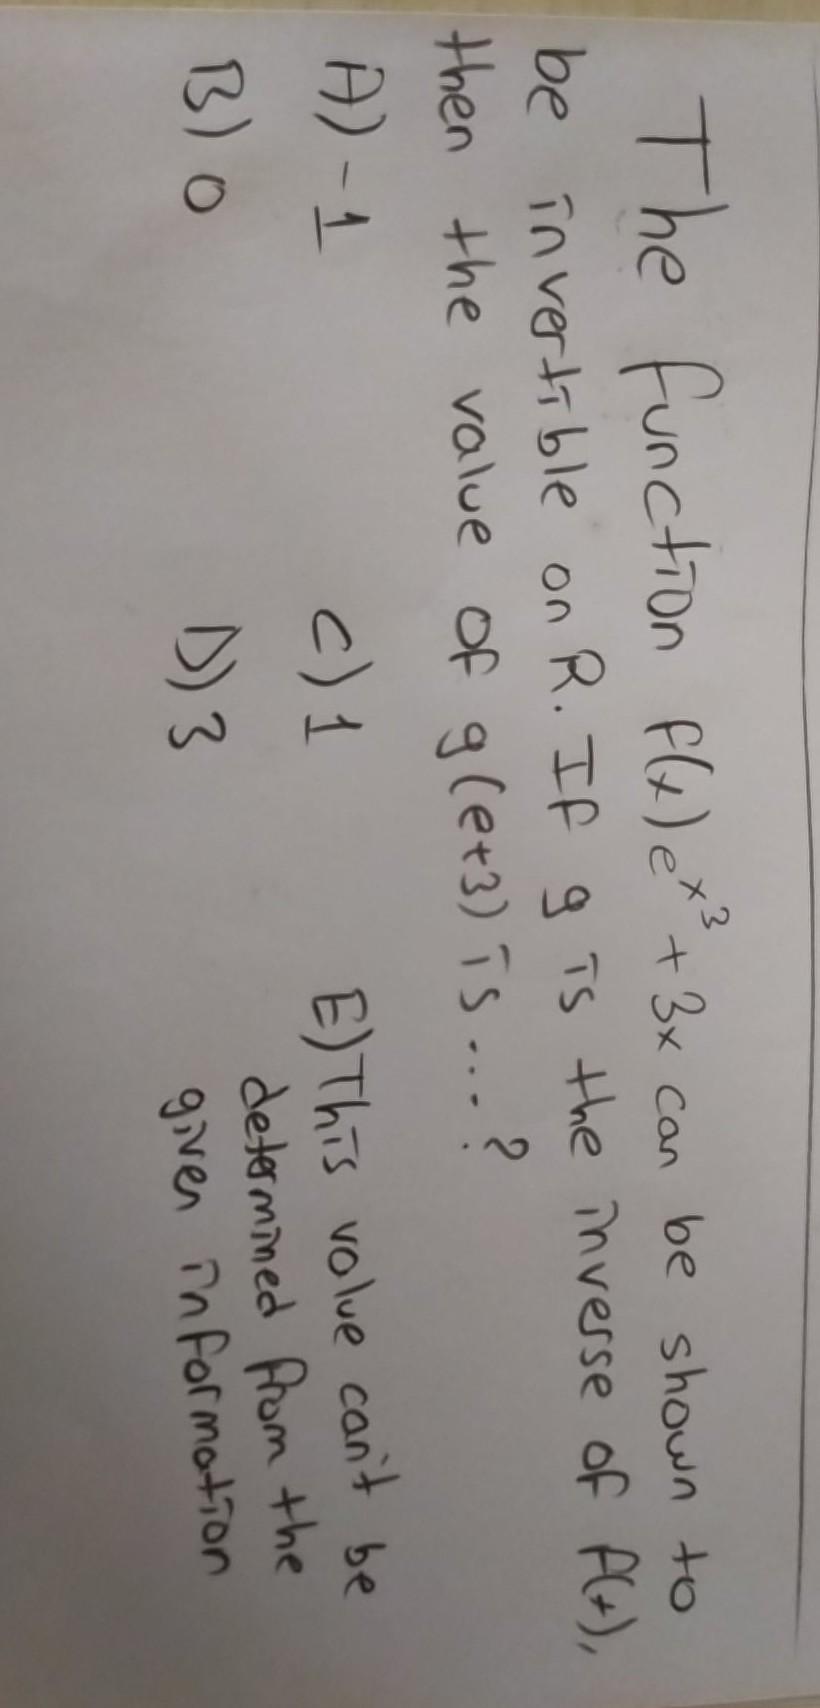 The function f(x) e^x^3 + 3x can be shown to
be invertible on R. If g is the inverse of f(x),
then the value of g(e+3) is...?
A) -1 C) 1 E) This value can't be
determined from the
B) 0 D) 3 given information